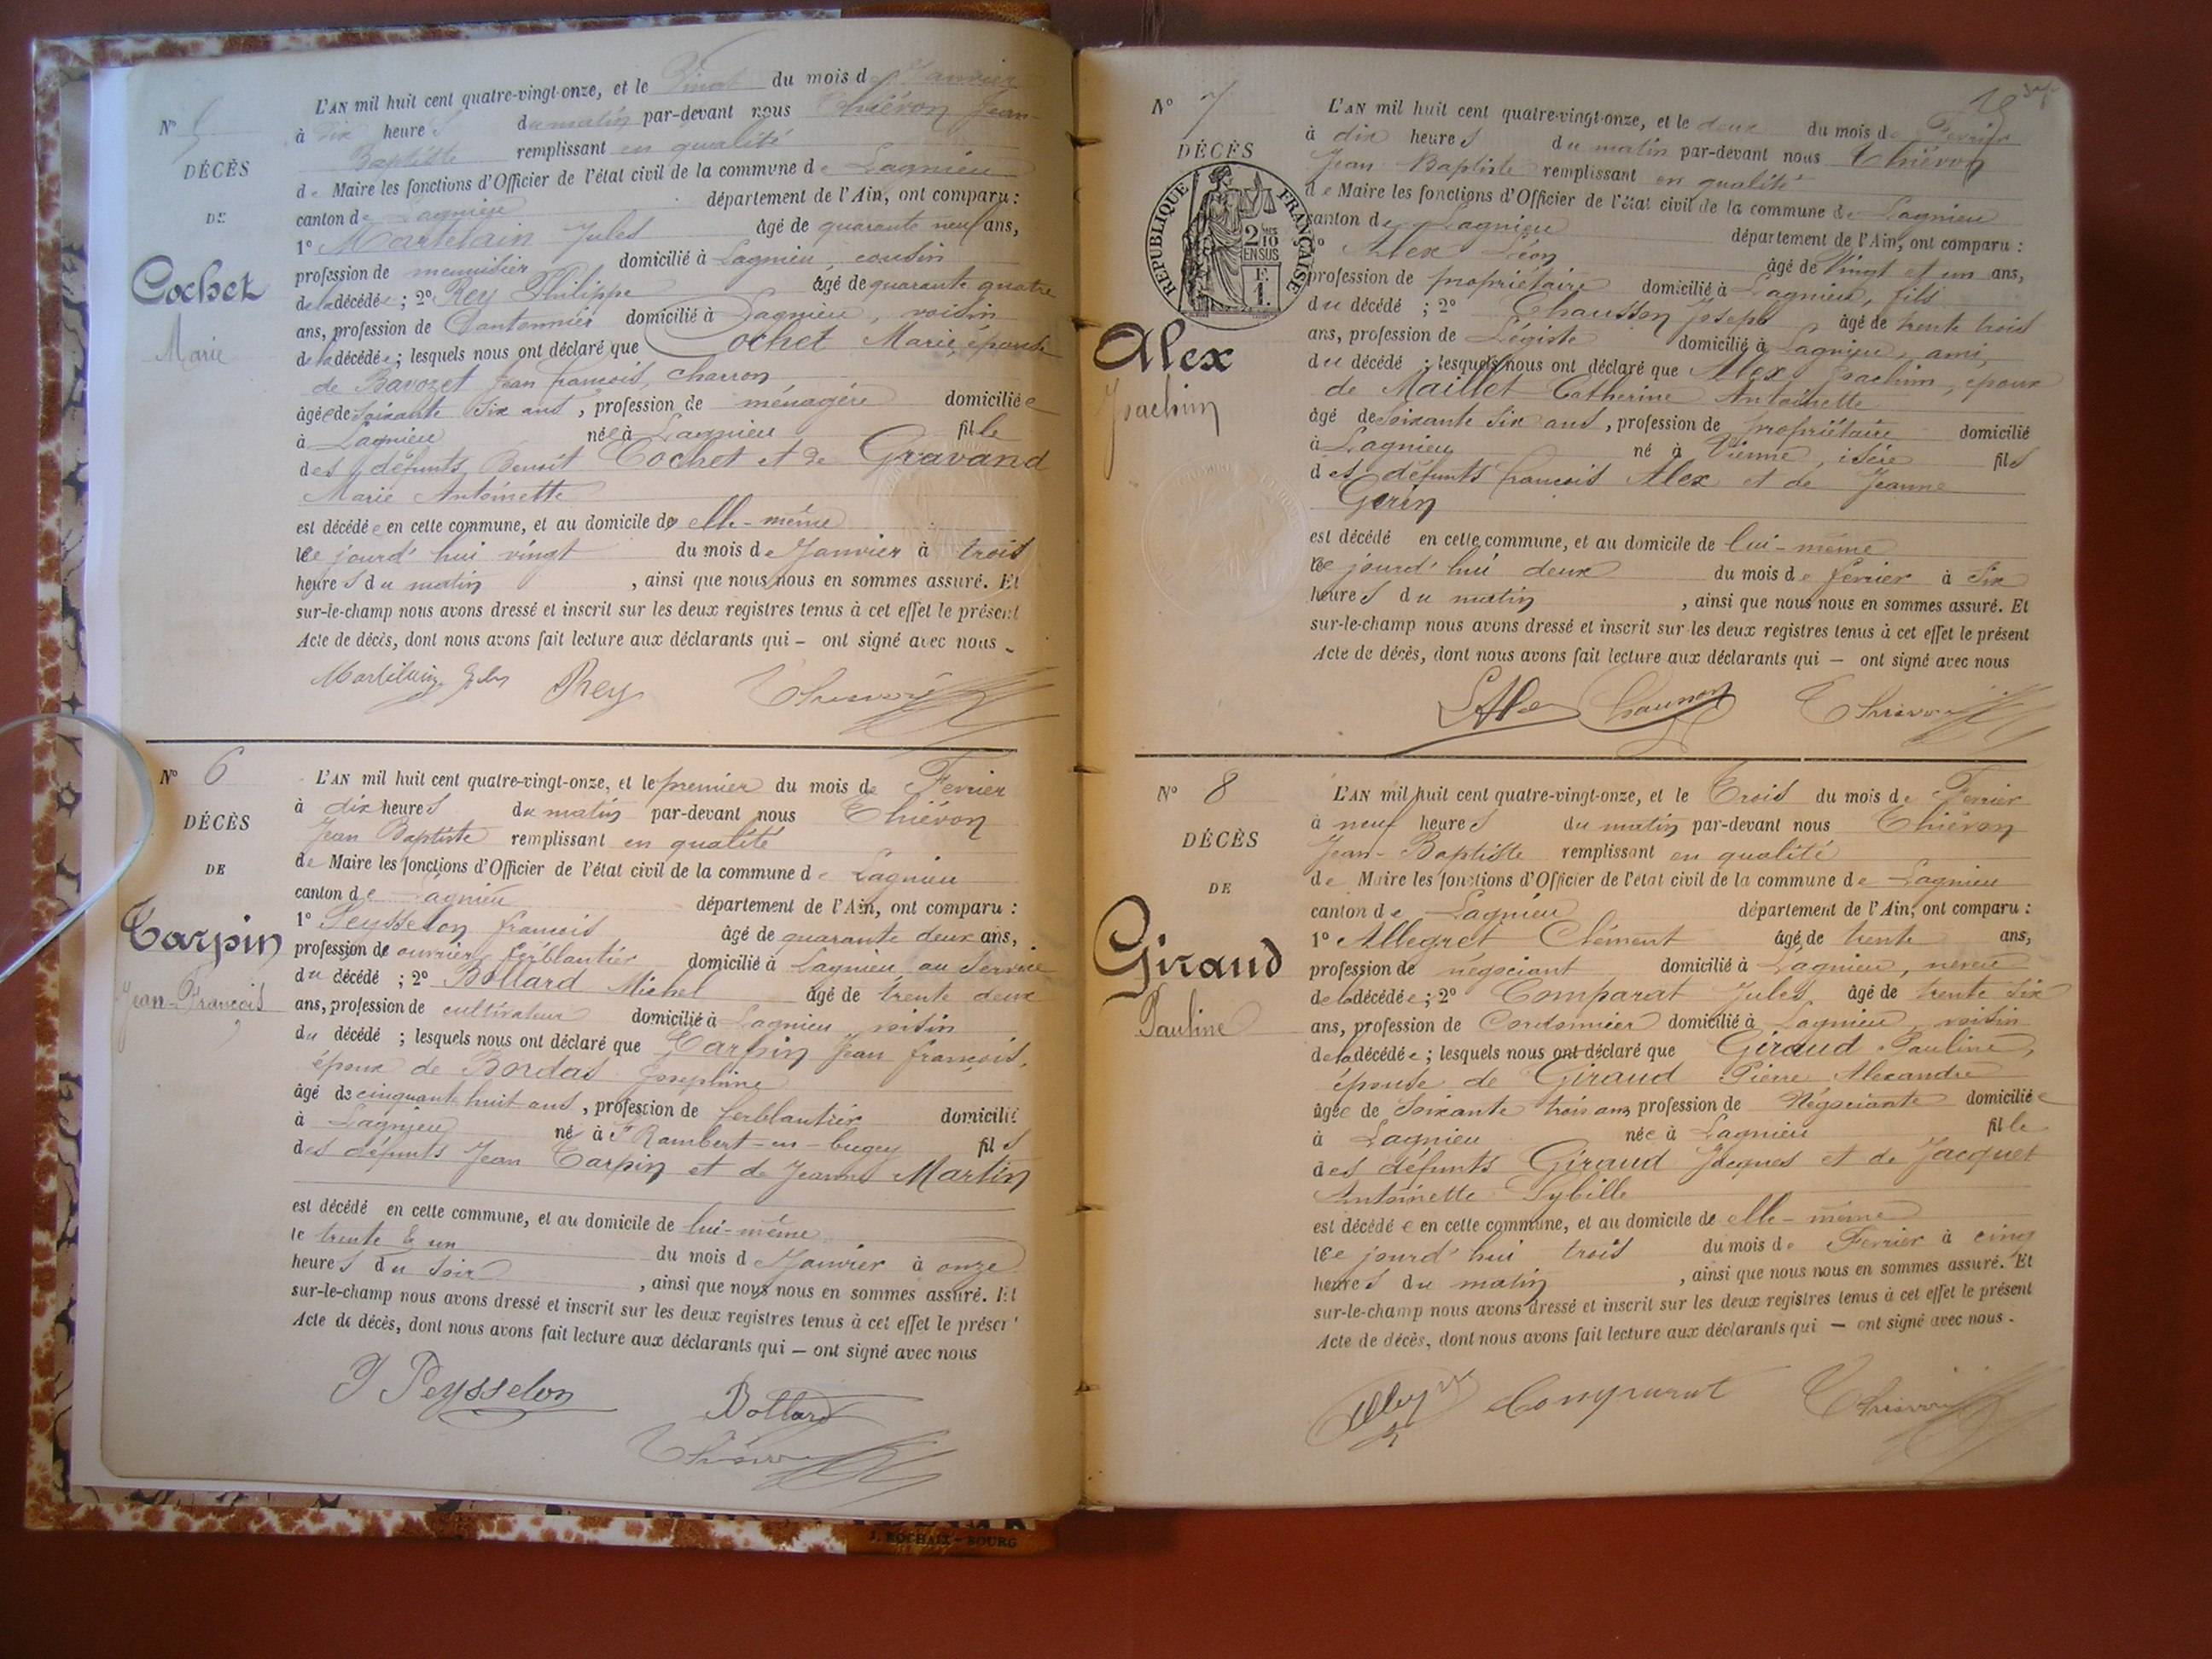 N° 5
DÉCÈS
DE
Cochet
Marie
L'AN mil huit cent quatre-vingt-onze, et le Vingt du mois de Janvier
à dix heures du matin par-devant nous Thiévon Jean-
Baptiste remplissant en qualité
de Maire les fonctions d'Officier de l'état civil de la commune de Lagnieu
canton de Lagnieu département de l'Ain, ont comparu :
1° Martelain Jules âgé de quarante neuf ans,
profession de menuisier domicilié à Lagnieu, cousin
de la décédée ; 2° Rey Philippe âgé de quarante quatre
ans, profession de Cantonnier domicilié à Lagnieu, voisin
de la décédée ; lesquels nous ont déclaré que Cochet Marie, épouse
de Bavozet Jean françois, charron
âgée de soixante six ans, profession de ménagère domiciliée
à Lagnieu née à Lagnieu fille
des défunts Benoît Cochet et de Gravand
Marie Antoinette
est décédée en cette commune, et au domicile de elle-même
ce jourd'hui vingt du mois de Janvier à trois
heures du matin, ainsi que nous nous en sommes assuré. Et
sur-le-champ nous avons dressé et inscrit sur les deux registres tenus à cet effet le présent
Acte de décès, dont nous avons fait lecture aux déclarants qui — ont signé avec nous
Rey Thiévon
N° 6
DÉCÈS
DE
Carpin
Jean-François
L'AN mil huit cent quatre-vingt-onze, et le premier du mois de Fevrier
à dix heures du matin par-devant nous Thiévon
Jean Baptiste remplissant en qualité
de Maire les fonctions d'Officier de l'état civil de la commune de Lagnieu
canton de Lagnieu département de l'Ain, ont comparu :
1° Peysselon françois âgé de quarante deux ans,
profession de ouvrier ferblantier domicilié à Lagnieu au service
du décédé ; 2° Bollard Michel âgé de trente deux
ans, profession de cultivateur domicilié à Lagnieu, voisin
du décédé ; lesquels nous ont déclaré que Carpin Jean françois,
époux de Bordas Josephine
âgé de cinquante huit ans, profession de ferblantier domicilié
à Lagnieu né à St Rambert-en-bugey fils
des défunts Jean Carpin et de Jeanne Martin
est décédé en cette commune, et au domicile de lui-même
le trente & un du mois de Janvier à onze
heures du soir, ainsi que nous nous en sommes assuré. Et
sur-le-champ nous avons dressé et inscrit sur les deux registres tenus à cet effet le présent
Acte de décès, dont nous avons fait lecture aux déclarants qui — ont signé avec nous
J Peysselon Bollard
Thiévon
J. ROCHAIX - BOURG
N° 7
DÉCÈS
REPUBLIQUE FRANÇAISE
2/10 EN SUS
Alex
Joachim
L'AN mil huit cent quatre-vingt-onze, et le deux du mois de Fevrier
à dix heures du matin par-devant nous Thiévon
Jean Baptiste remplissant en qualité
de Maire les fonctions d'Officier de l'état civil de la commune de Lagnieu
canton de Lagnieu département de l'Ain, ont comparu :
1° Alex Léon âgé de Vingt et un ans,
profession de propriétaire domicilié à Lagnieu, fils
du décédé ; 2° Chausson Joseph âgé de trente trois
ans, profession de Légiste domicilié à Lagnieu, ami,
du décédé ; lesquels nous ont déclaré que Alex Joachim, époux
de Maillet Catherine Antoinette
âgé de soixante six ans, profession de propriétaire domicilié
à Lagnieu né à Vienne, isère fils
des défunts françois Alex et de Jeanne
Gerin
est décédé en cette commune, et au domicile de lui-même
ce jourd'hui deux du mois de fevrier à six
heures du matin, ainsi que nous nous en sommes assuré. Et
sur-le-champ nous avons dressé et inscrit sur les deux registres tenus à cet effet le présent
Acte de décès, dont nous avons fait lecture aux déclarants qui — ont signé avec nous
L Alex Chausson Thiévon
N° 8
DÉCÈS
DE
Giraud
Pauline
L'AN mil huit cent quatre-vingt-onze, et le Trois du mois de Fevrier
à neuf heures du matin par-devant nous Thiévon
Jean-Baptiste remplissant en qualité
de Maire les fonctions d'Officier de l'état civil de la commune de Lagnieu
canton de Lagnieu département de l'Ain, ont comparu :
1° Allegret Clément âgé de trente ans,
profession de négociant domicilié à Lagnieu, neveu
de la décédée ; 2° Comparat Jules âgé de trente six
ans, profession de Cordonnier domicilié à Lagnieu, voisin
de la décédée ; lesquels nous ont déclaré que Giraud Pauline,
épouse de Giraud Pierre Alexandre
âgée de soixante trois ans profession de Négociante domiciliée
à Lagnieu née à Lagnieu fille
des défunts Giraud Jacques et de Jacquet
Antoinette Sybille
est décédée en cette commune, et au domicile de elle-même
ce jourd'hui trois du mois de Fevrier à cinq
heures du matin, ainsi que nous nous en sommes assuré. Et
sur-le-champ nous avons dressé et inscrit sur les deux registres tenus à cet effet le présent
Acte de décès, dont nous avons fait lecture aux déclarants qui — ont signé avec nous.
Comparat Thiévon